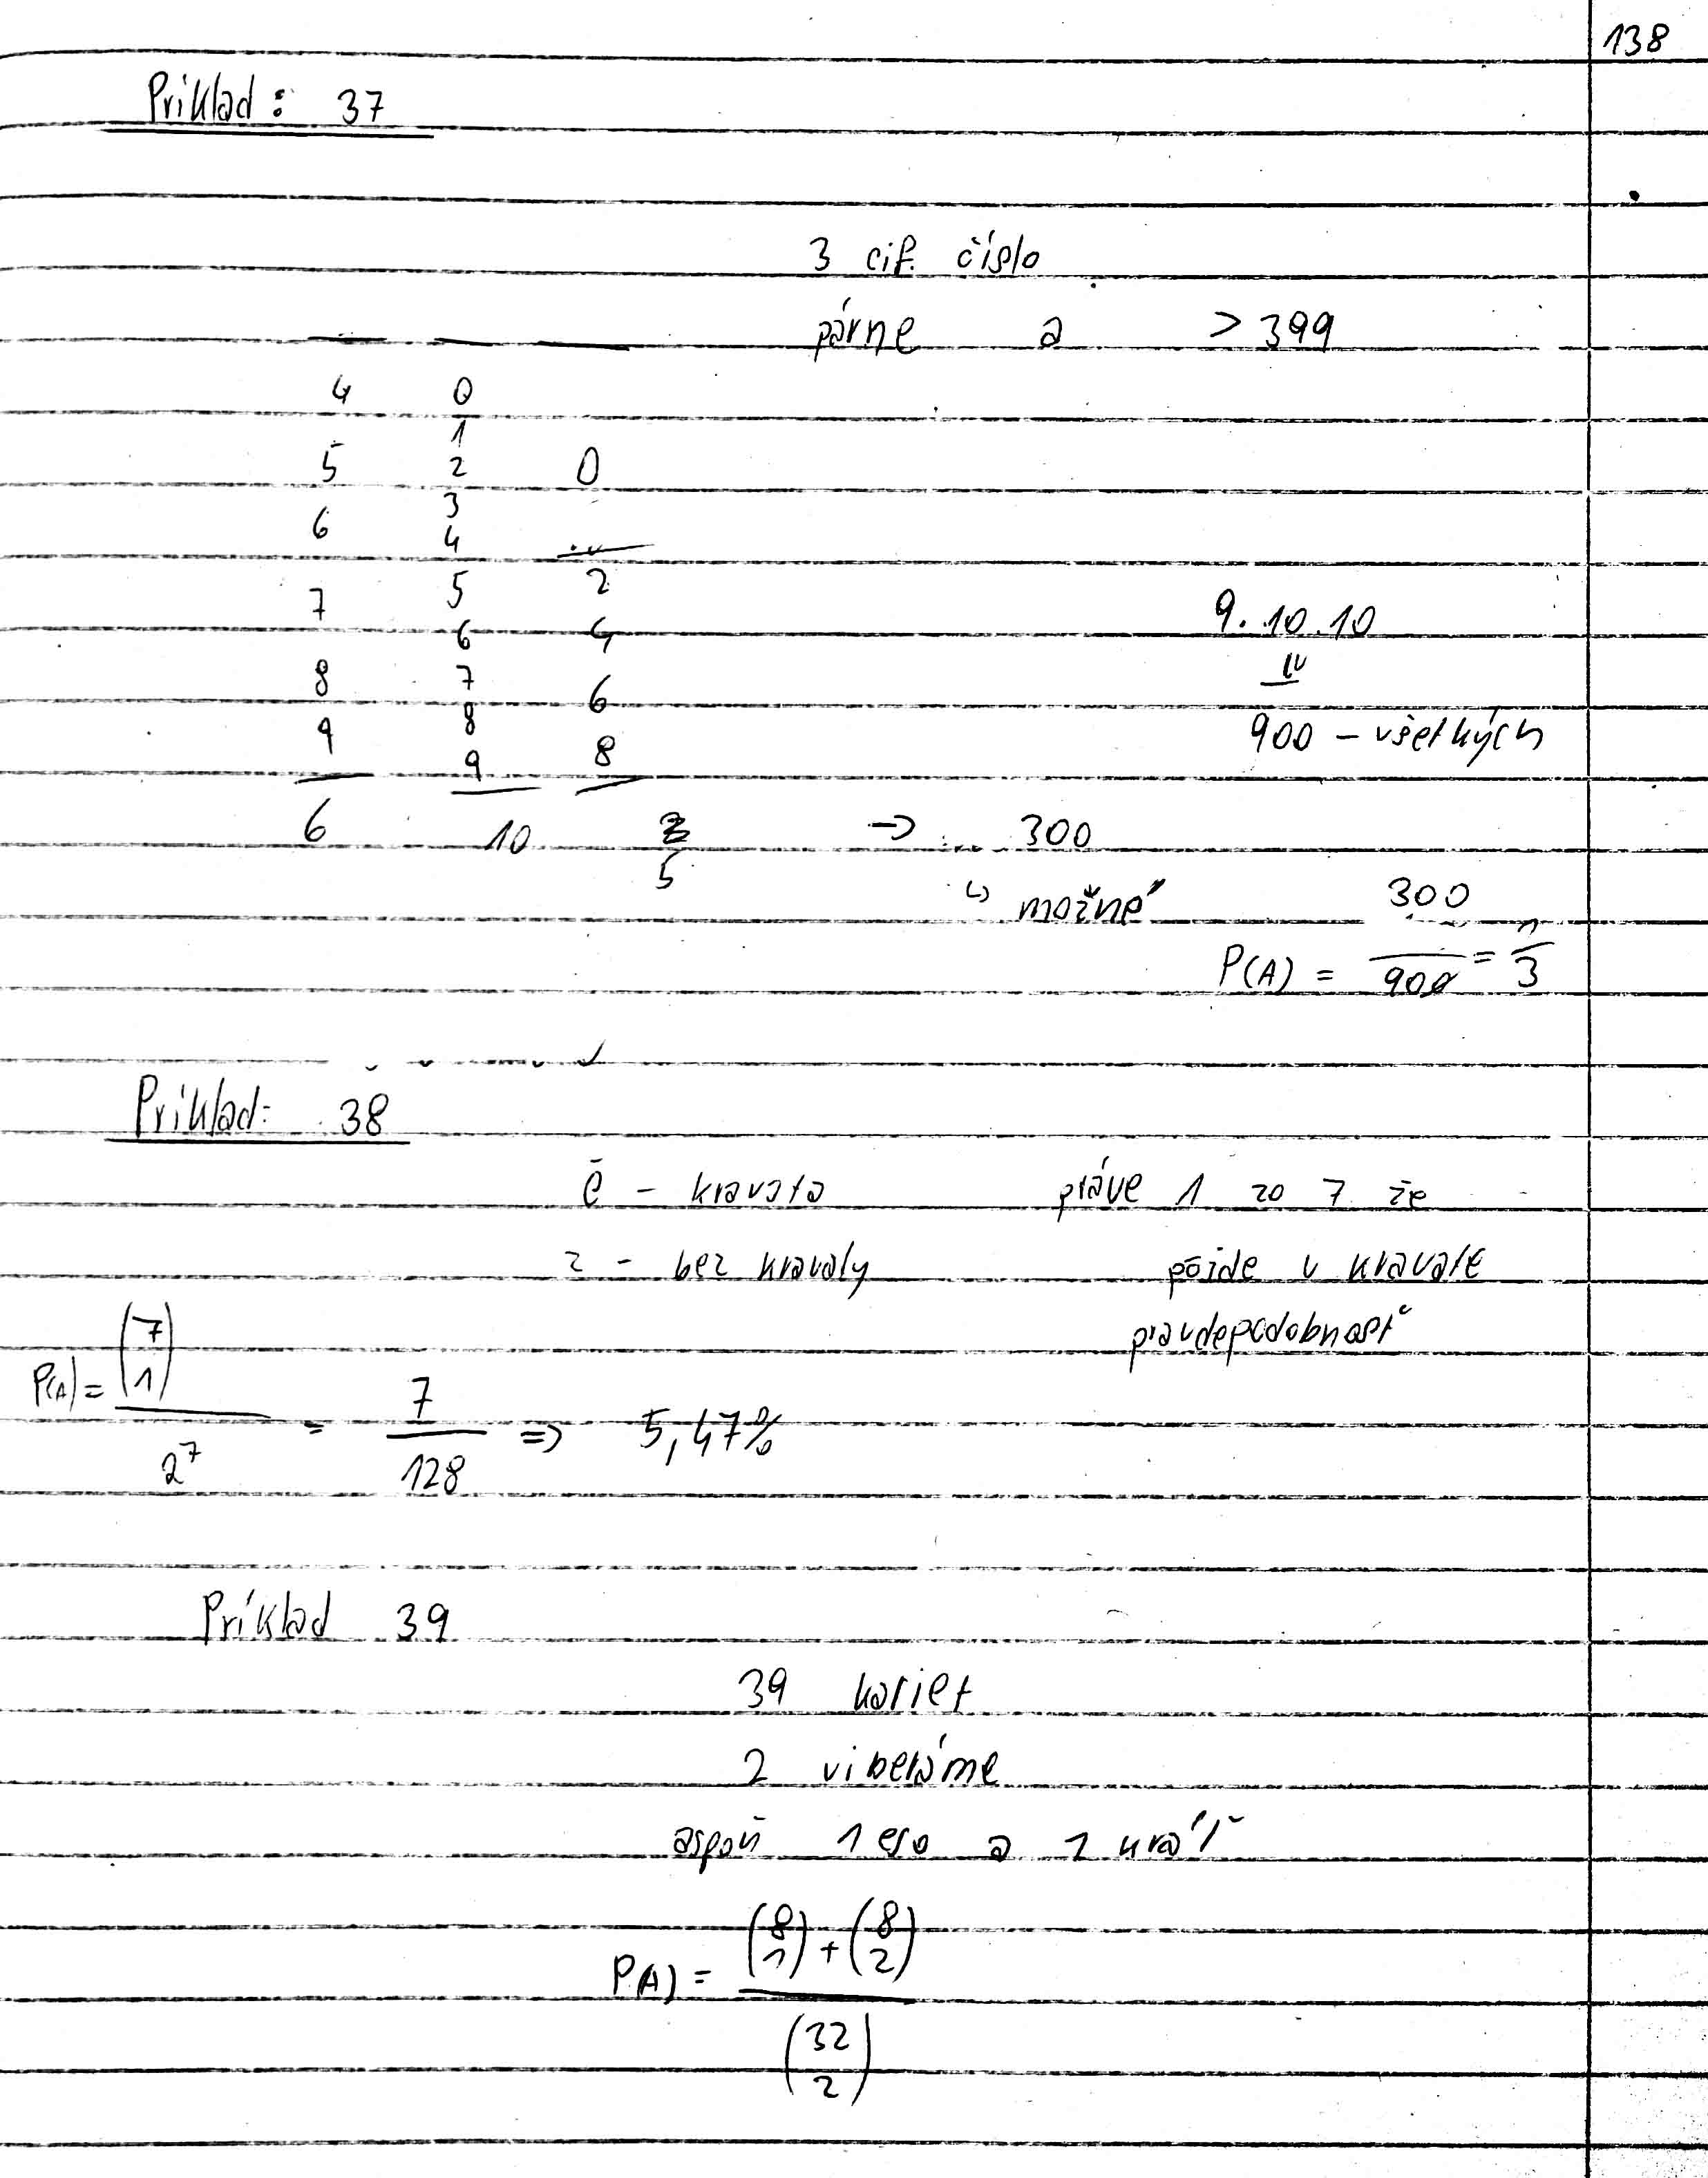 138
Príklad: 37
3 cif. číslo
párne a > 399
4 0
1
5 2 0
3
6 4
5 2
7 9.10.10
6 4
8 7 6
8
9 900 - všetkých
9 8
6 10 5 -> 300
↳ možné 300
P(A) = 300/900 = 1/3
Príklad: 38
č - kravata práve 1 zo 7 že
z - bez kravaty pôjde v kravate
pravdepodobnosť
P(A) = (7 1) / 2^7 = 7/128 => 5,47%
Príklad 39
39 kariet
2 viberáme
aspoň 1 eso a 1 kráľ
P(A) = ((8 1) + (8 2)) / (32 2)